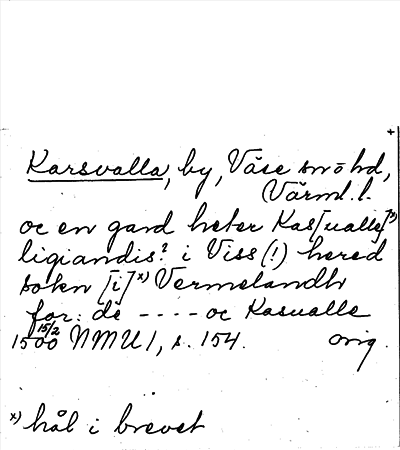 +
Karsvalla, by, Väse sn o hd,
Värml. l.
oc en gard heter Kas[ualle]x)
ligiandis? i Viss (!) hered
sokn [i]x) Vermelandh
for: de ---- oc Kasualle
15 15/2 00 NMU 1, s. 154. orig.
x) hål i brevet